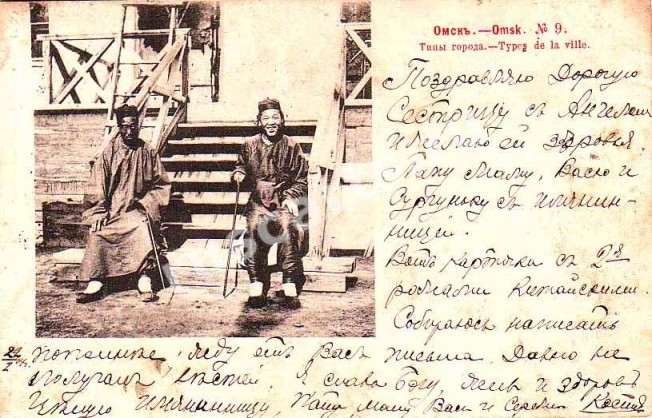 Омскъ.—Omsk. № 9.
Типы города.—Types de la ville.
Поздравляю Дорогую
Сестрицу съ Ангеломъ
и желаю ей здоровья.
Папу Маму, Васю и
Сергуньку съ имянин-
ницей.
Вотъ карточки съ 2мя
рожами китайскими.
Собираюсь написать
жду отъ Васъ письма. Давно не
получалъ вѣстей. Я слава Богу, живъ и здоровъ
Цѣлую имянинницу, Папа Маму Васю и Сережу Костя